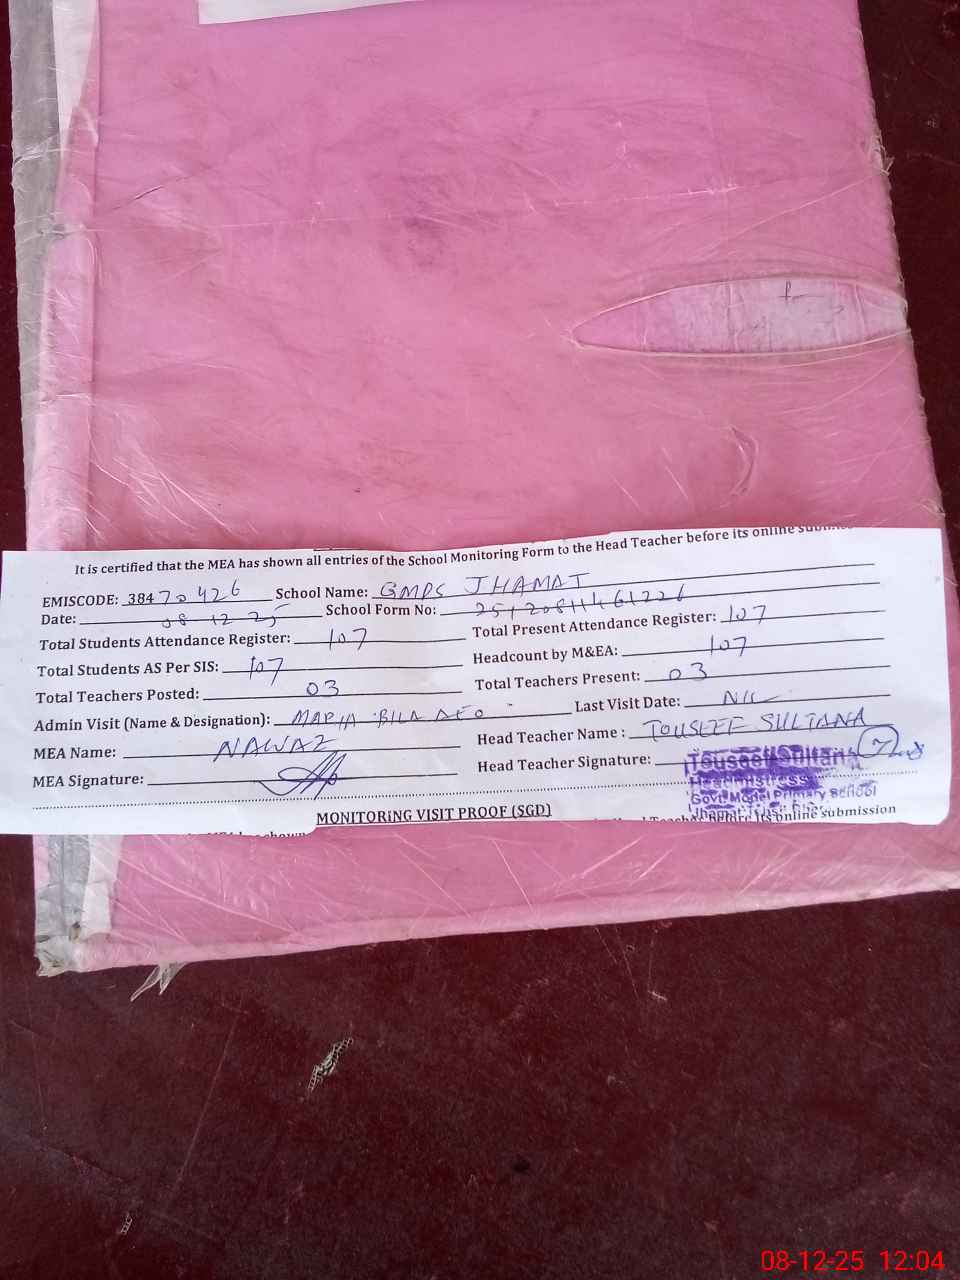 It is certified that the MEA has shown all entries of the School Monitoring Form to the Head Teacher before its online
EMISCODE: 38470426 School Name: GMPS JHAMAT
Date: 08 12 25 School Form No:
Total Students Attendance Register: 107 Total Present Attendance Register: 107
Total Students AS Per SIS: 107 Headcount by M&EA: 107
Total Teachers Posted: 03 Total Teachers Present: 03
Admin Visit (Name & Designation): MARIA BILA AEO Last Visit Date: NIL
MEA Name: NAWAZ Head Teacher Name : TOUSEEF SULTANA
MEA Signature: Head Teacher Signature:
Headmistress
Govt. Model Primary School
MONITORING VISIT PROOF (SGD)
before its online submission
08-12-25 12:04